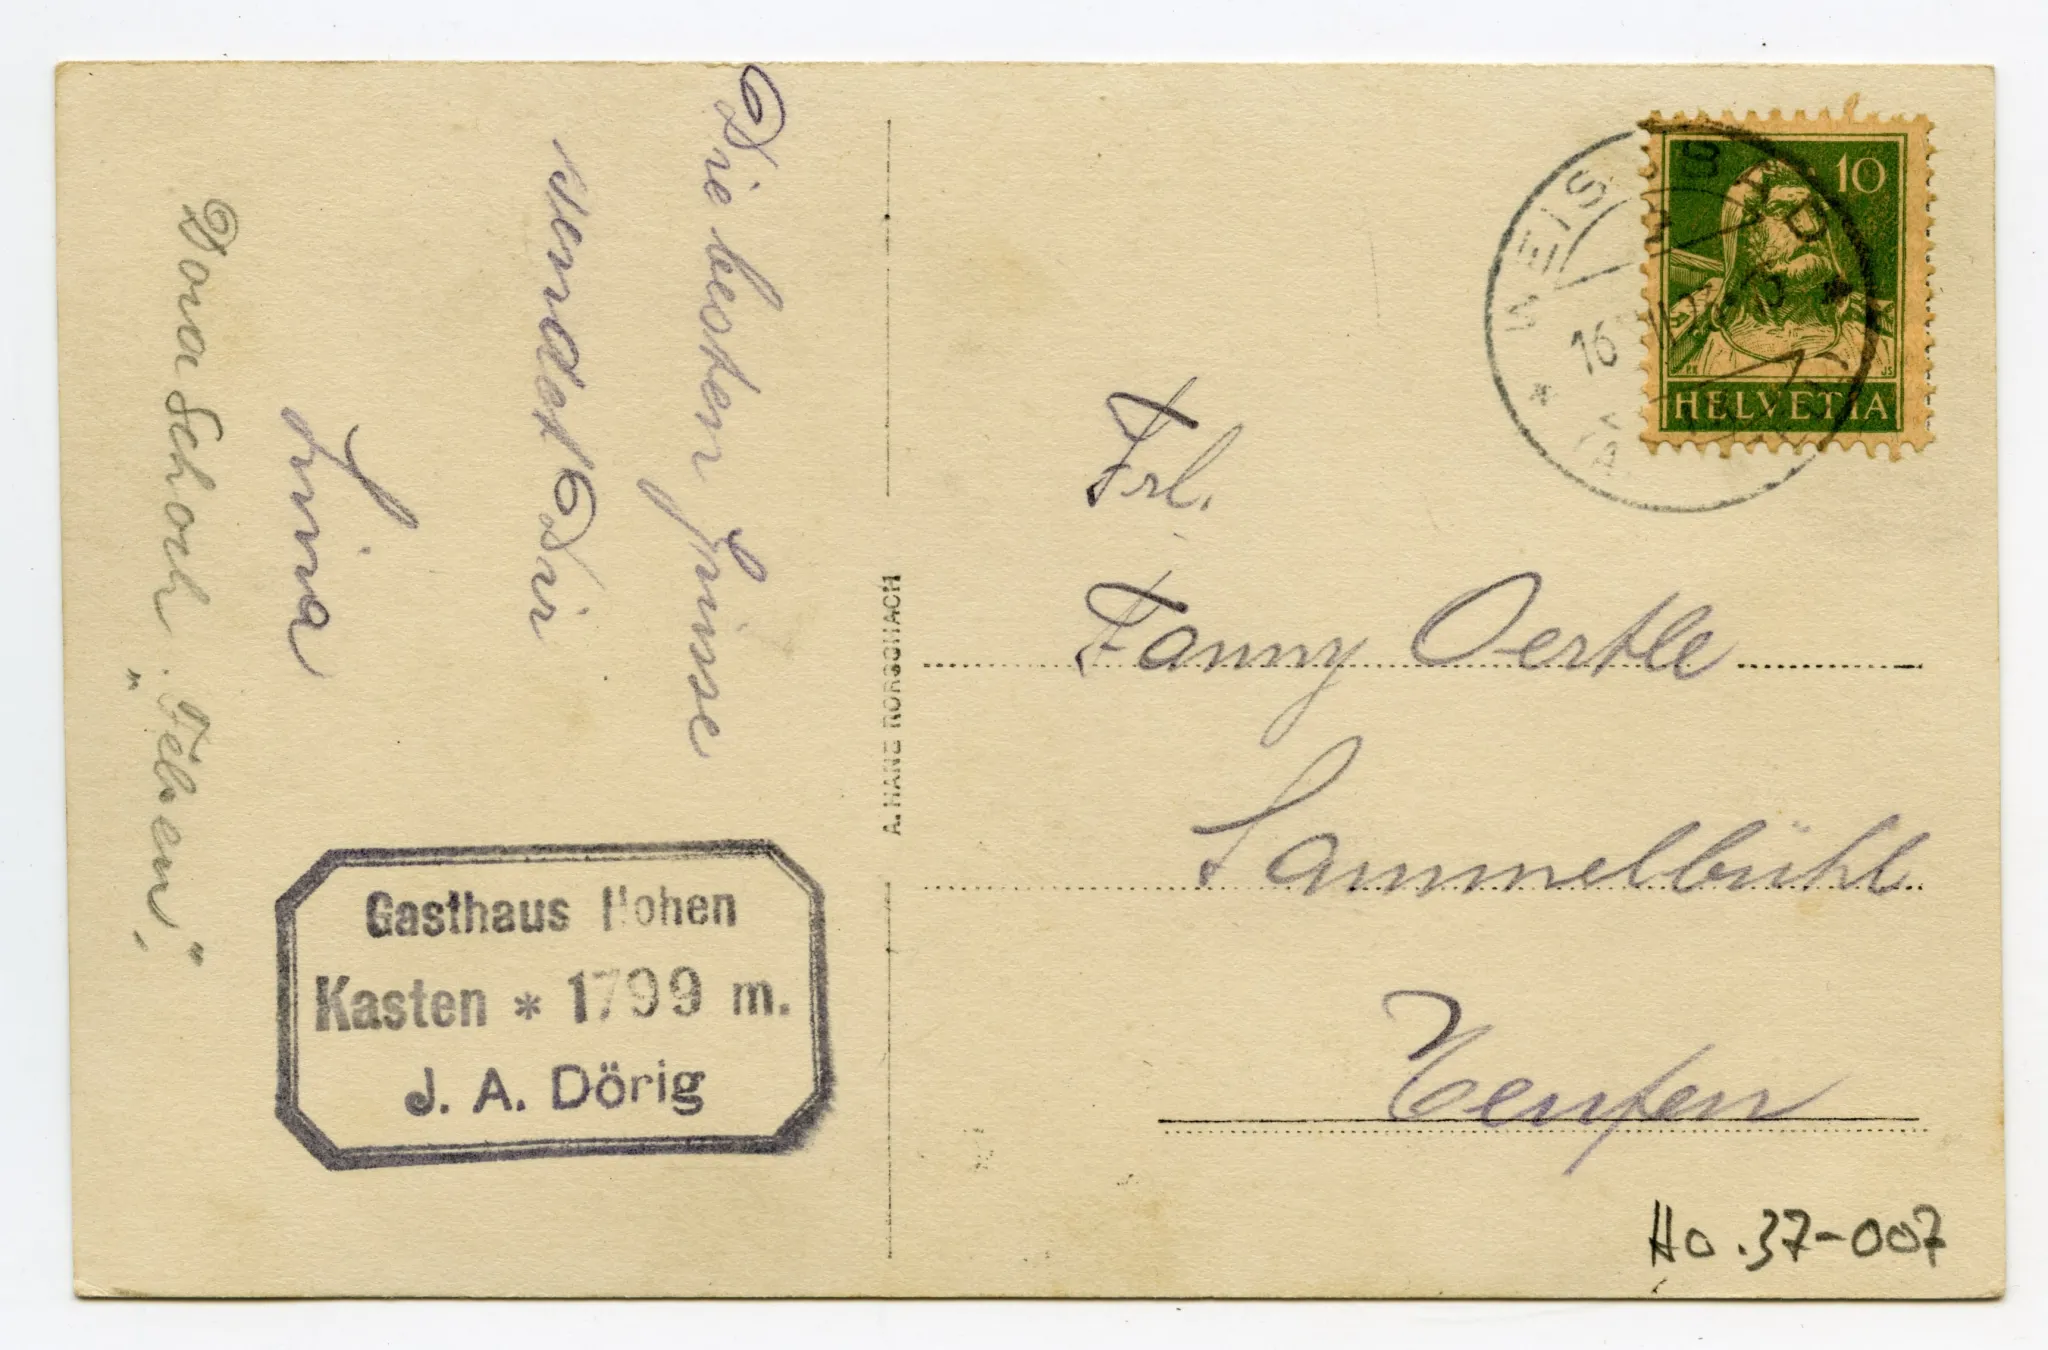 Die besten Grüsse
sendet Dir
Lina
Dora Schoch
Gasthaus Hohen
Kasten * 1799 m.
J. A. Dörig
A. HANE RORSCHACH
WEISSBAD
16
10
HELVETIA
Frl.
Fanny Oertle
Sammelbühl
Teufen
Ho.37-007